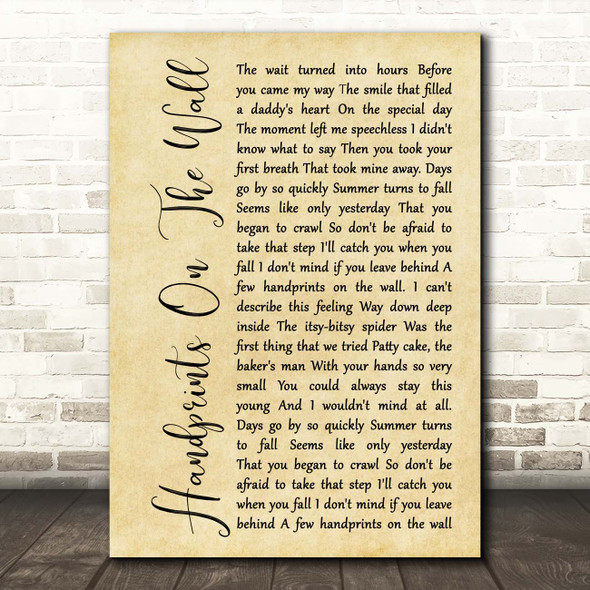 Handprints On The Wall
The wait turned into hours Before
you came my way The smile that filled
a daddy's heart On the special day
The moment left me speechless I didn't
know what to say Then you took your
first breath That took mine away. Days
go by so quickly Summer turns to fall
Seems like only yesterday That you
began to crawl So don't be afraid to
take that step I'll catch you when you
fall I don't mind if you leave behind A
few handprints on the wall. I can't
describe this feeling Way down deep
inside The itsy-bitsy spider Was the
first thing that we tried Patty cake, the
baker's man With your hands so very
small You could always stay this
young And I wouldn't mind at all.
Days go by so quickly Summer turns
to fall Seems like only yesterday
That you began to crawl So don't be
afraid to take that step I'll catch you
when you fall I don't mind if you leave
behind A few handprints on the wall